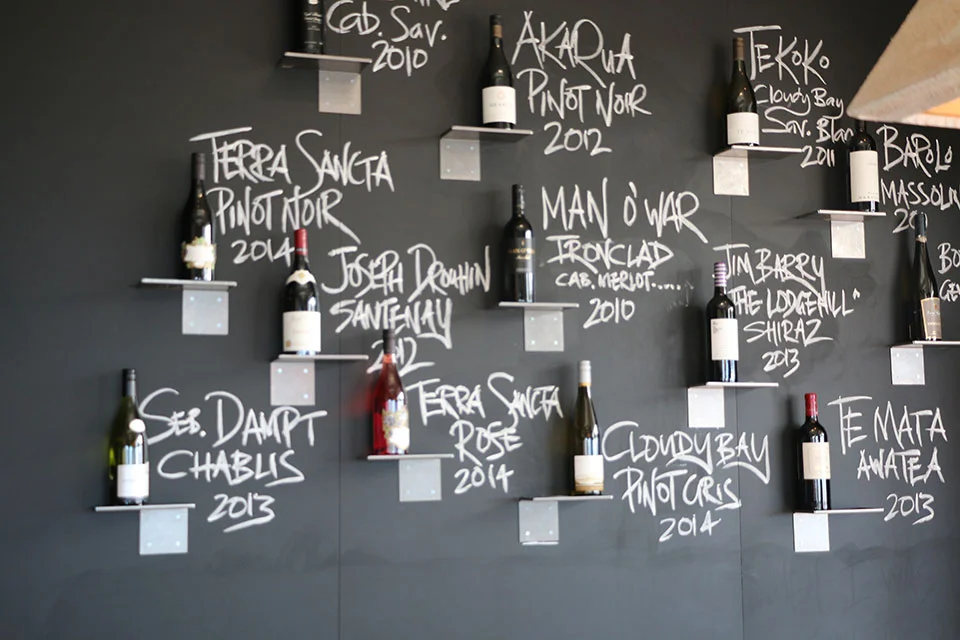 Cab. Sav.
2010
AKARUA
PINOT NOIR
2012
TEKOKO
Cloudy Bay
Sav. Blan
2011
BAROLO
MASSOLIN
20
TERRA SANCTA
PINOT NOIR
2014
JOSEPH DROUHIN
SANTENAY
2012
MAN O'WAR
IRONCLAD
CAB. MERLOT.....
2010
JIM BARRY
"THE LODGEHILL"
SHIRAZ
2013
BO
GEW
SEB. DAMPT
CHABLIS
2013
TERRA SANCTA
ROSE
2014
CLOUDY BAY
PINOT GRIS
2014
TE MATA
AWATEA
2013